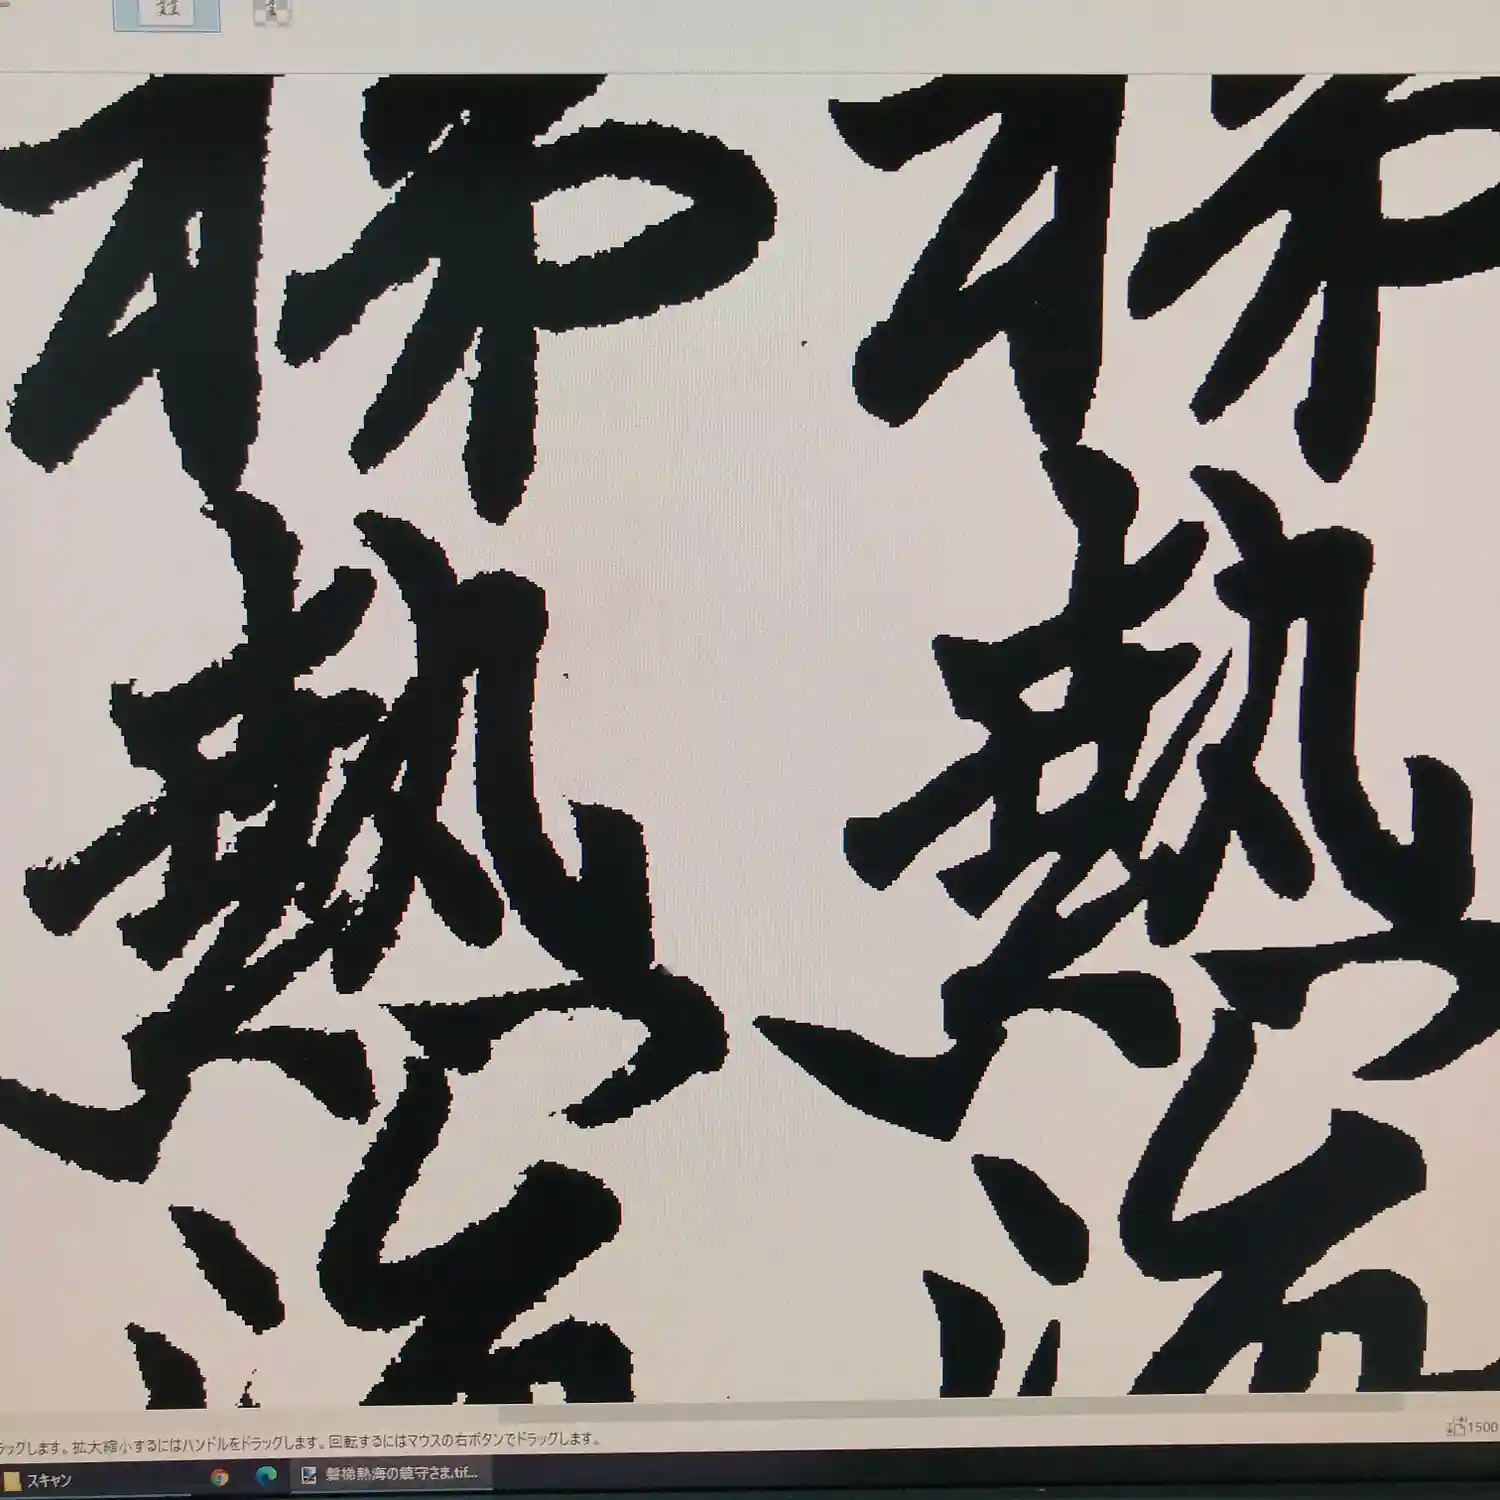 梯
熱
海
梯
熱
海
ラッグします。拡大縮小するにはハンドルをドラッグします。回転するにはマウスの右ボタンでドラッグします。
1500
スキャン
磐梯熱海の鎮守さま.tif...